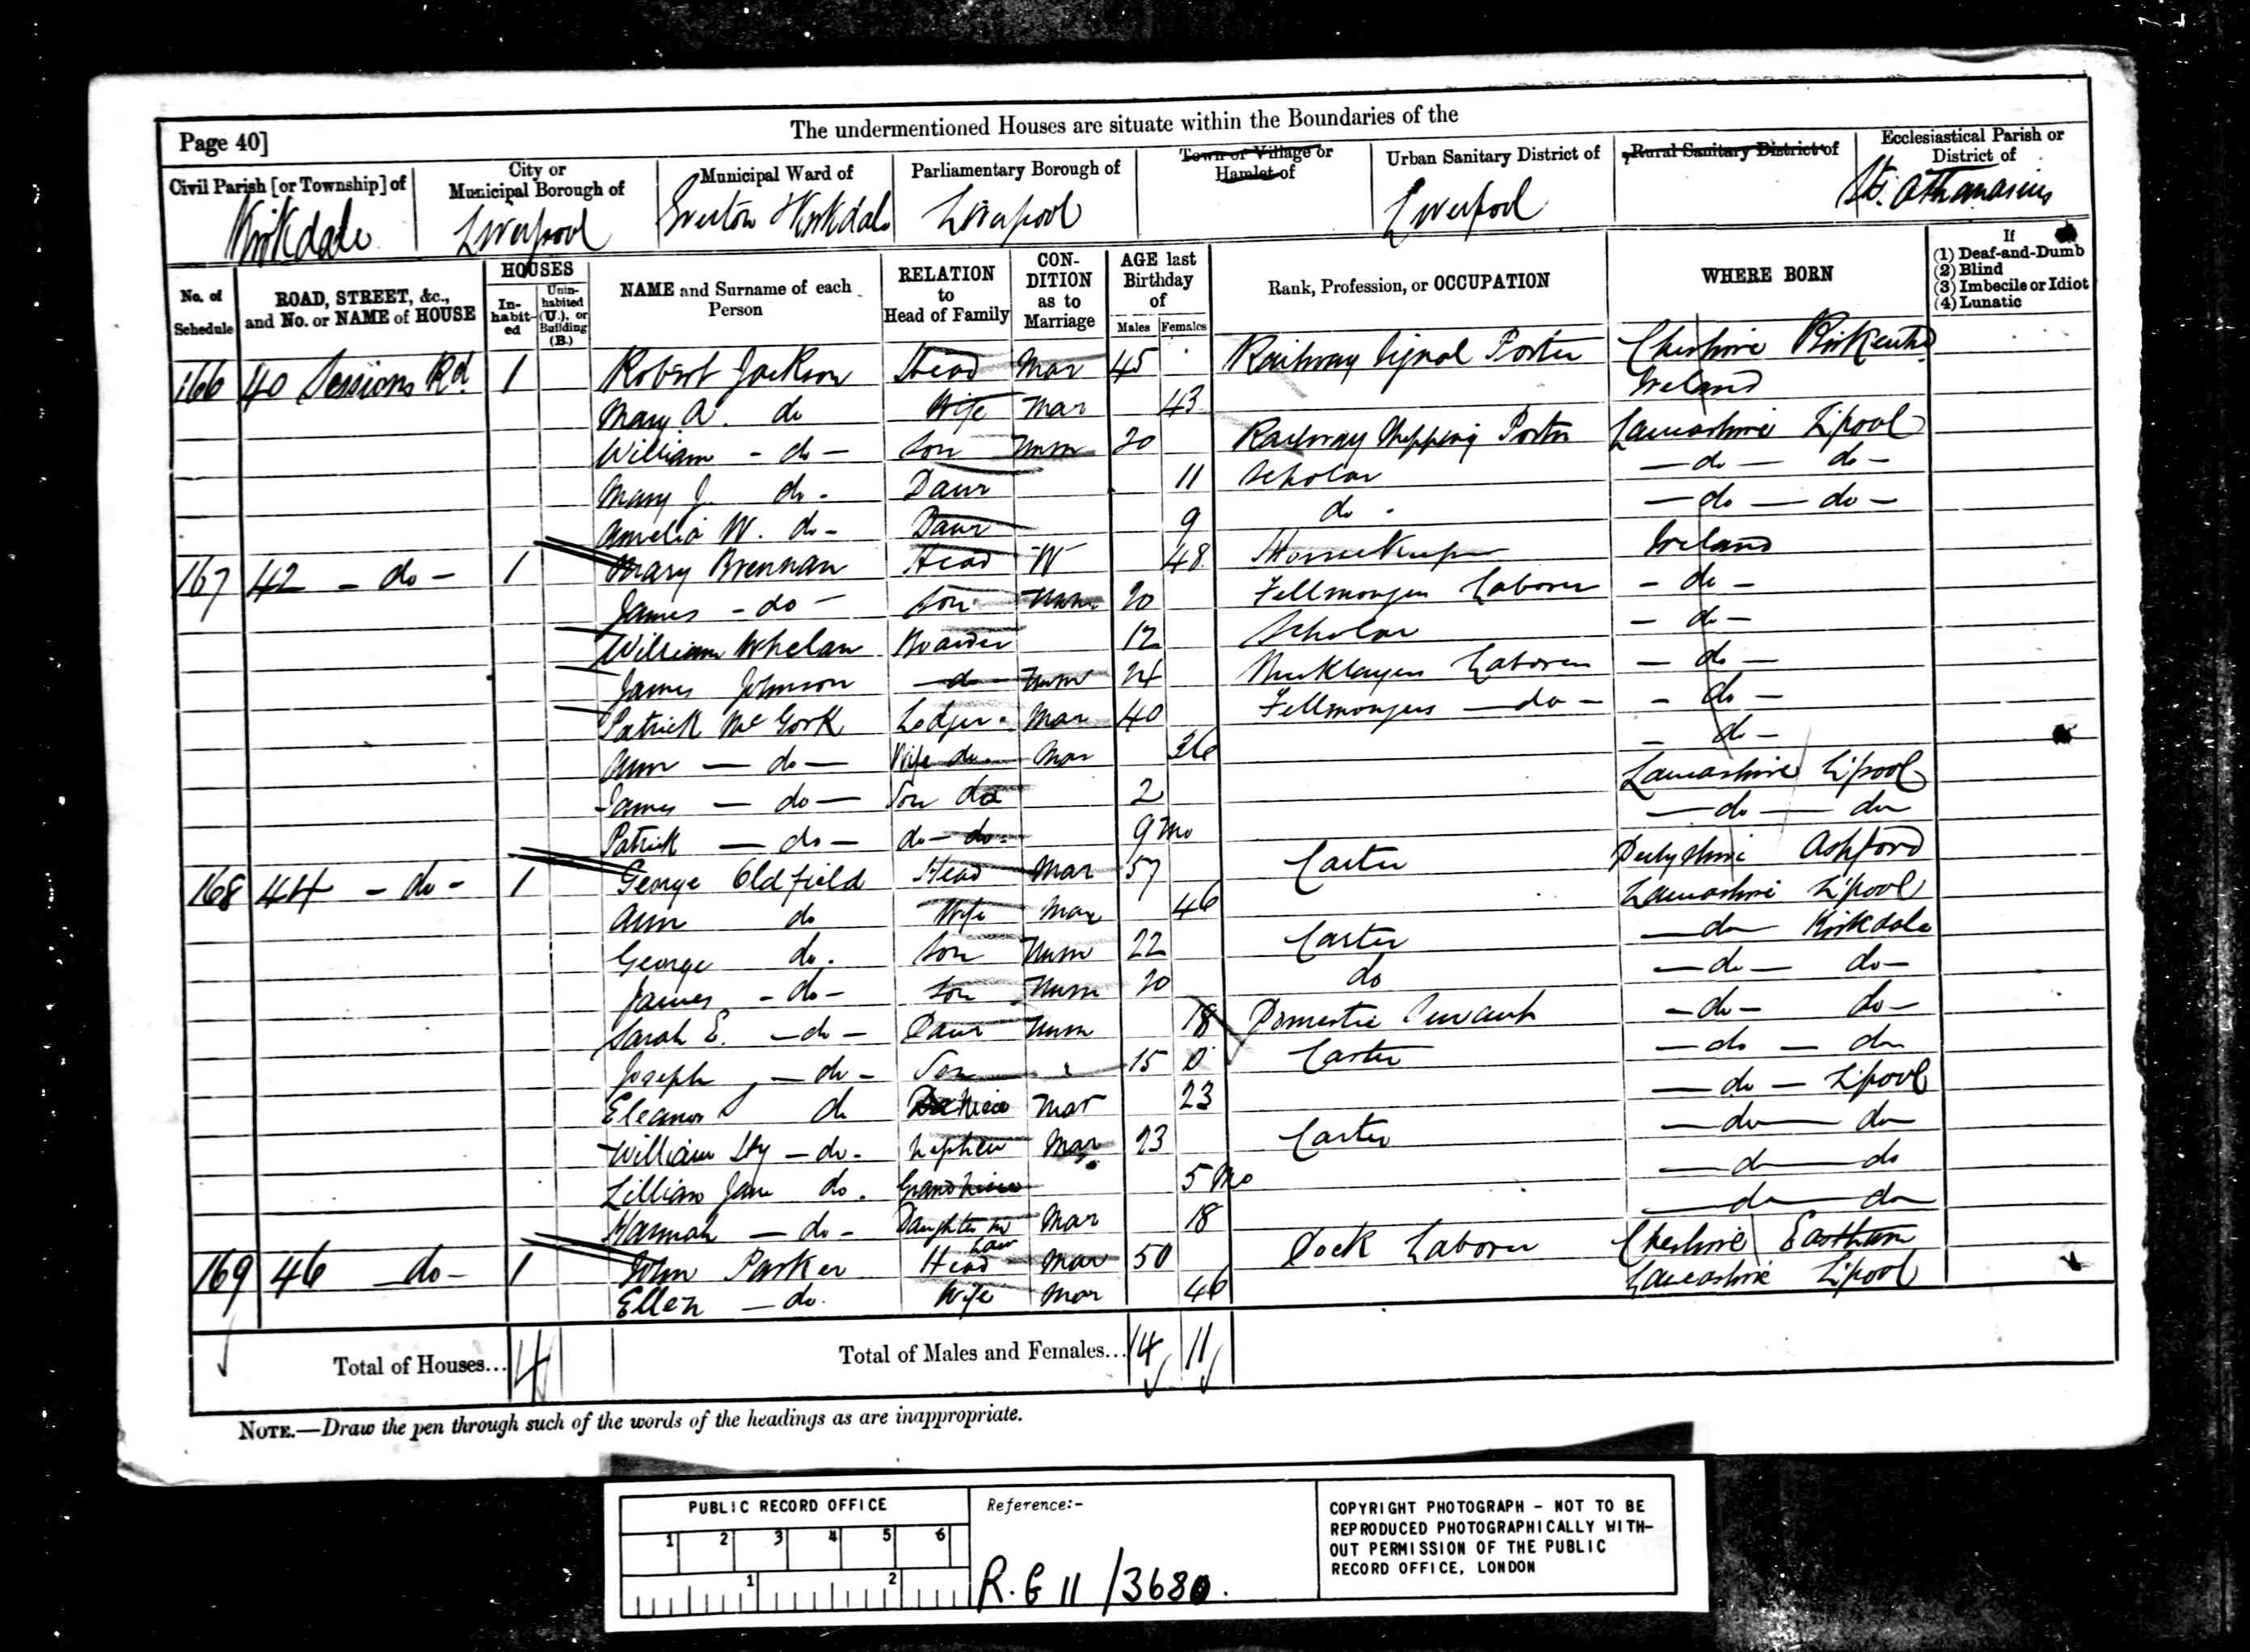 Page 40]
The undermentioned Houses are situate within the Boundaries of the
Civil Parish [or Township] of
City or Municipal Borough of
Municipal Ward of
Parliamentary Borough of
Town or Village or Hamlet of
Urban Sanitary District of
Rural Sanitary District of
Ecclesiastical Parish or District of
Kirkdale Liverpool Everton & Kirkdale Liverpool Liverpool St. Athanasius
No. of Schedule
ROAD, STREET, &c., and No. or NAME of HOUSE
HOUSES
In-habit-ed
Unin-habited (U.), or Building (B.)
NAME and Surname of each Person
RELATION to Head of Family
CON-DITION as to Marriage
AGE last Birthday of
Males Females
Rank, Profession, or OCCUPATION
WHERE BORN
If
(1) Deaf-and-Dumb
(2) Blind
(3) Imbecile or Idiot
(4) Lunatic
166 40 Sessions Rd. 1 Robert Jackson Head Mar 45 Railway Signal Porter Cheshire Birkenhd
Mary A. do Wife Mar 43 Ireland
William - do - Son Unm 20 Railway Shipping Porter Lancashire L'pool
Mary J. do - Daur 11 Scholar - do - do -
Amelia W. do - Daur 9 do - - do - do -
167 42 - do - 1 Mary Brennan Head W 48 Housekeeper Ireland
James - do - Son Unm 20 Fellmongers Laborer - do -
William Whelan Boarder 12 Scholar - do -
James Johnson - do - Unm 24 Bricklayers Laborer - do -
Patrick Mc Gork Lodger - Mar 40 Fellmongers - do - - do -
Ann - do - Wife do - Mar 36 - do -
James - do - Son do 2 Lancashire L'pool
Patrick - do - do - do - 9 Mo - do - do
168 44 - do - 1 George Oldfield Head Mar 57 Carter Derbyshire Ashford
Ann do Wife Mar 46 Lancashire L'pool
George do. Son Unm 22 Carter - do Kirkdale
James - do - Son Unm 20 do - do - do -
Sarah E. - do - Daur Unm 18 Domestic Servant - do - do -
Joseph - do - Son 15 Carter - do - do
Eleanor do Niece Mar 23 - do - L'pool
William Hy - do - Nephew Mar 23 Carter - do - do
Lillian Jane do. Grand niece 5 Mo - do - do
Hannah - do - Daughter in Law Mar 18 - do - do
169 46 - do - 1 John Parker Head Mar 50 Dock Laborer Cheshire Eastham
Ellen - do. Wife Mar 46 Lancashire L'pool
Total of Houses... 4 Total of Males and Females... 14 11
NOTE.—Draw the pen through such of the words of the headings as are inappropriate.
PUBLIC RECORD OFFICE
1 2 3 4 5 6
1 2
Reference:-
R.G 11/3680.
COPYRIGHT PHOTOGRAPH - NOT TO BE
REPRODUCED PHOTOGRAPHICALLY WITH-
OUT PERMISSION OF THE PUBLIC
RECORD OFFICE, LONDON